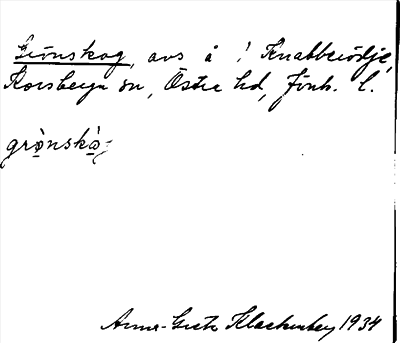 Grönskog, avs å ! Knabberödje,
Korsberga sn, Östra hd, Jönk. l.
grø̀nskò,
Anna-Greta Klackenberg 1934